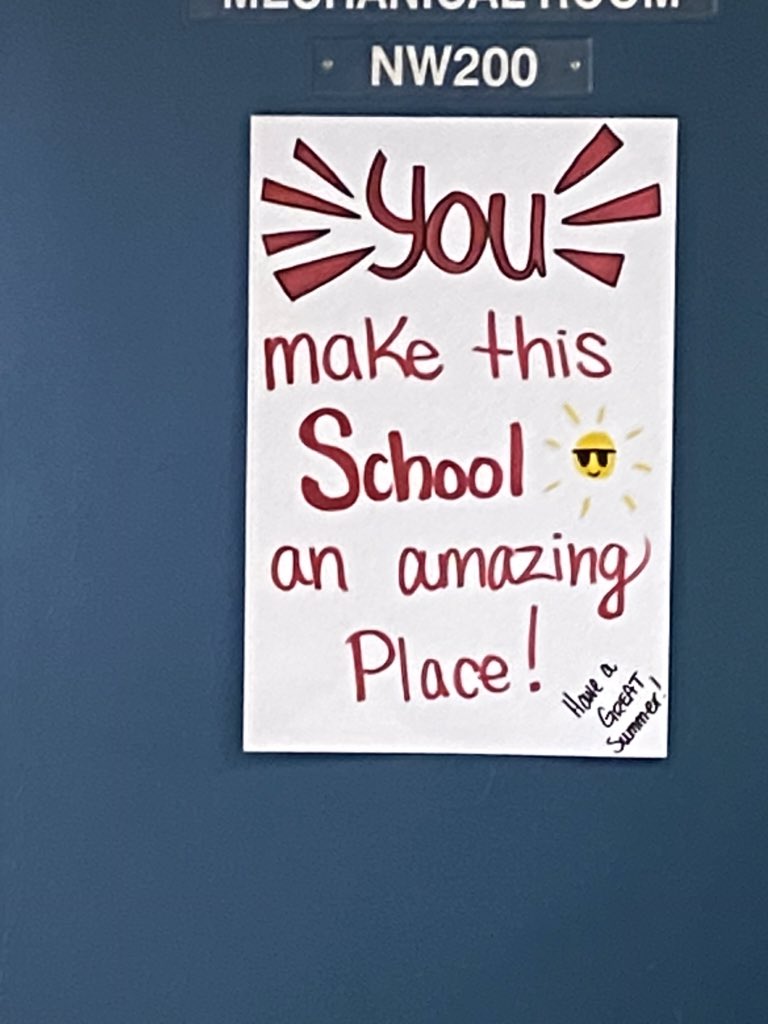 MECHANICAL ROOM
NW200
You
make this
School
an amazing
Place!
Have a
GREAT
Summer!